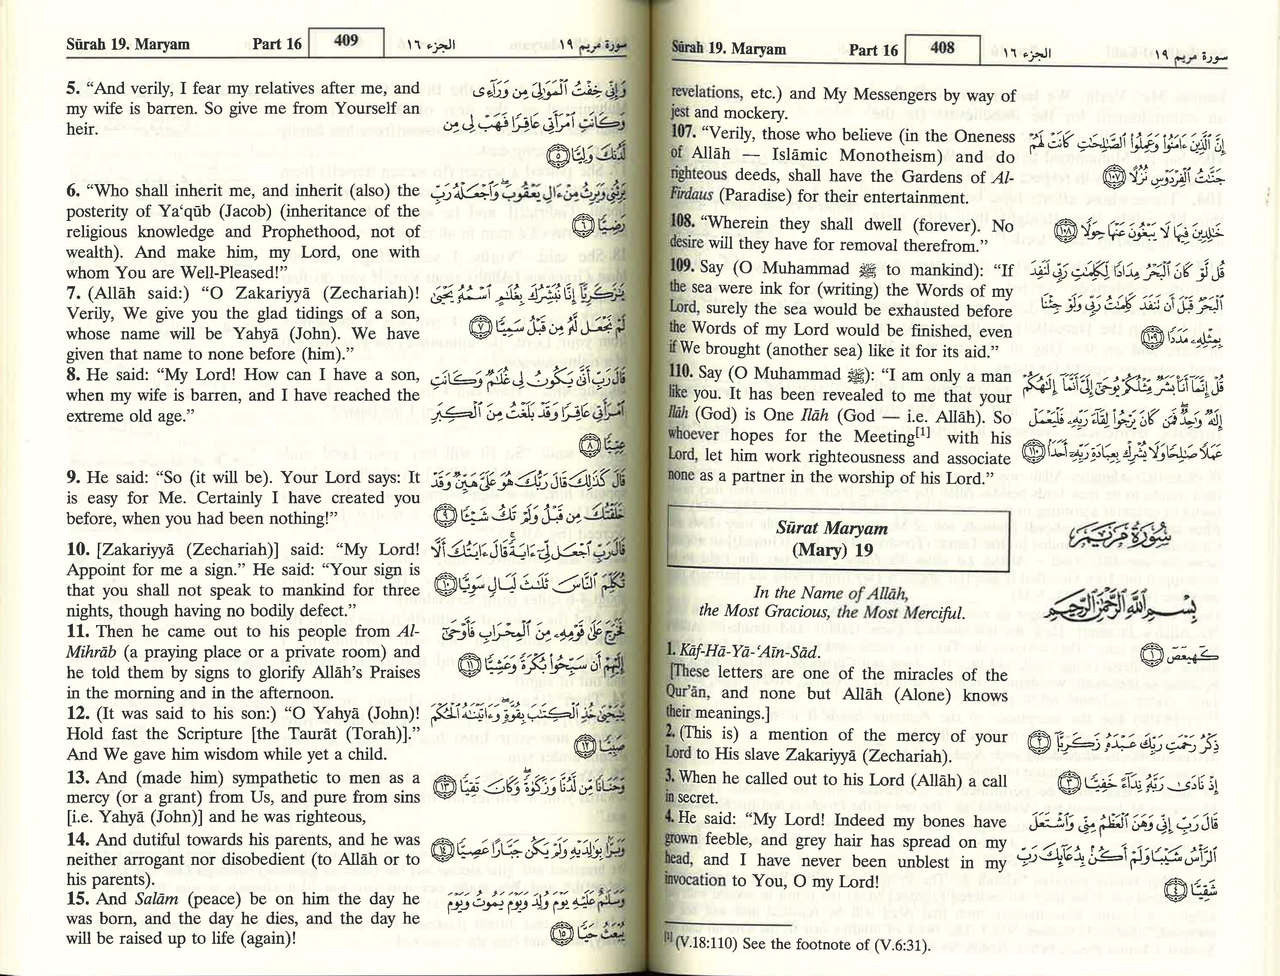 Sūrah 19. Maryam Part 16 408 الجزء ١٦ سورة مريم ١٩
revelations, etc.) and My Messengers by way of
jest and mockery.
107. “Verily, those who believe (in the Oneness
of Allāh — Islāmic Monotheism) and do
righteous deeds, shall have the Gardens of Al-
Firdaus (Paradise) for their entertainment.
108. “Wherein they shall dwell (forever). No
desire will they have for removal therefrom.”
109. Say (O Muhammad ﷺ to mankind): “If
the sea were ink for (writing) the Words of my
Lord, surely the sea would be exhausted before
the Words of my Lord would be finished, even
if We brought (another sea) like it for its aid.”
110. Say (O Muhammad ﷺ): “I am only a man
like you. It has been revealed to me that your
Ilāh (God) is One Ilāh (God — i.e. Allāh). So
whoever hopes for the Meeting[1] with his
Lord, let him work righteousness and associate
none as a partner in the worship of his Lord.”
إِنَّ ٱلَّذِينَ ءَامَنُوا۟ وَعَمِلُوا۟ ٱلصَّـٰلِحَـٰتِ كَانَتْ لَهُمْ
جَنَّـٰتُ ٱلْفِرْدَوْسِ نُزُلًا ١٠٧
خَـٰلِدِينَ فِيهَا لَا يَبْغُونَ عَنْهَا حِوَلًا ١٠٨
قُل لَّوْ كَانَ ٱلْبَحْرُ مِدَادًا لِّكَلِمَـٰتِ رَبِّى لَنَفِدَ
ٱلْبَحْرُ قَبْلَ أَن تَنفَدَ كَلِمَـٰتُ رَبِّى وَلَوْ جِئْنَا
بِمِثْلِهِۦ مَدَدًا ١٠٩
قُلْ إِنَّمَآ أَنَا۠ بَشَرٌ مِّثْلُكُمْ يُوحَىٰٓ إِلَىَّ أَنَّمَآ إِلَـٰهُكُمْ
إِلَـٰهٌ وَٰحِدٌ ۖ فَمَن كَانَ يَرْجُوا۟ لِقَآءَ رَبِّهِۦ فَلْيَعْمَلْ
عَمَلًا صَـٰلِحًا وَلَا يُشْرِكْ بِعِبَادَةِ رَبِّهِۦٓ أَحَدًۢا ١١٠
Sūrat Maryam
(Mary) 19
سُورَةُ مَرْيَمَ
In the Name of Allāh,
the Most Gracious, the Most Merciful.
بِسْمِ ٱللَّهِ ٱلرَّحْمَـٰنِ ٱلرَّحِيمِ
1. Kāf-Hā-Yā-‘Aīn-Sād.
[These letters are one of the miracles of the
Qur’ān, and none but Allāh (Alone) knows
their meanings.]
2. (This is) a mention of the mercy of your
Lord to His slave Zakariyyā (Zechariah).
3. When he called out to his Lord (Allāh) a call
in secret.
4. He said: “My Lord! Indeed my bones have
grown feeble, and grey hair has spread on my
head, and I have never been unblest in my
invocation to You, O my Lord!
كٓهيعٓصٓ ١
ذِكْرُ رَحْمَتِ رَبِّكَ عَبْدَهُۥ زَكَرِيَّآ ٢
إِذْ نَادَىٰ رَبَّهُۥ نِدَآءً خَفِيًّا ٣
قَالَ رَبِّ إِنِّى وَهَنَ ٱلْعَظْمُ مِنِّى وَٱشْتَعَلَ
ٱلرَّأْسُ شَيْبًا وَلَمْ أَكُنۢ بِدُعَآئِكَ رَبِّ
شَقِيًّا ٤
[1] (V.18:110) See the footnote of (V.6:31).
Sūrah 19. Maryam Part 16 409 الجزء ١٦ سورة مريم ١٩
5. “And verily, I fear my relatives after me, and
my wife is barren. So give me from Yourself an
heir.
6. “Who shall inherit me, and inherit (also) the
posterity of Ya‘qūb (Jacob) (inheritance of the
religious knowledge and Prophethood, not of
wealth). And make him, my Lord, one with
whom You are Well-Pleased!”
7. (Allāh said:) “O Zakariyyā (Zechariah)!
Verily, We give you the glad tidings of a son,
whose name will be Yahyā (John). We have
given that name to none before (him).”
8. He said: “My Lord! How can I have a son,
when my wife is barren, and I have reached the
extreme old age.”
9. He said: “So (it will be). Your Lord says: It
is easy for Me. Certainly I have created you
before, when you had been nothing!”
10. [Zakariyyā (Zechariah)] said: “My Lord!
Appoint for me a sign.” He said: “Your sign is
that you shall not speak to mankind for three
nights, though having no bodily defect.”
11. Then he came out to his people from Al-
Mihrāb (a praying place or a private room) and
he told them by signs to glorify Allāh’s Praises
in the morning and in the afternoon.
12. (It was said to his son:) “O Yahyā (John)!
Hold fast the Scripture [the Taurāt (Torah)].”
And We gave him wisdom while yet a child.
13. And (made him) sympathetic to men as a
mercy (or a grant) from Us, and pure from sins
[i.e. Yahyā (John)] and he was righteous,
14. And dutiful towards his parents, and he was
neither arrogant nor disobedient (to Allāh or to
his parents).
15. And Salām (peace) be on him the day he
was born, and the day he dies, and the day he
will be raised up to life (again)!
وَإِنِّى خِفْتُ ٱلْمَوَٰلِىَ مِن وَرَآءِى
وَكَانَتِ ٱمْرَأَتِى عَاقِرًا فَهَبْ لِى مِن
لَّدُنكَ وَلِيًّا ٥
يَرِثُنِى وَيَرِثُ مِنْ ءَالِ يَعْقُوبَ ۖ وَٱجْعَلْهُ رَبِّ
رَضِيًّا ٦
يَـٰزَكَرِيَّآ إِنَّا نُبَشِّرُكَ بِغُلَـٰمٍ ٱسْمُهُۥ يَحْيَىٰ
لَمْ نَجْعَل لَّهُۥ مِن قَبْلُ سَمِيًّا ٧
قَالَ رَبِّ أَنَّىٰ يَكُونُ لِى غُلَـٰمٌ وَكَانَتِ
ٱمْرَأَتِى عَاقِرًا وَقَدْ بَلَغْتُ مِنَ ٱلْكِبَرِ
عِتِيًّا ٨
قَالَ كَذَٰلِكَ قَالَ رَبُّكَ هُوَ عَلَىَّ هَيِّنٌ وَقَدْ
خَلَقْتُكَ مِن قَبْلُ وَلَمْ تَكُ شَيْـًٔا ٩
قَالَ رَبِّ ٱجْعَل لِّىٓ ءَايَةً ۚ قَالَ ءَايَتُكَ أَلَّا
تُكَلِّمَ ٱلنَّاسَ ثَلَـٰثَ لَيَالٍ سَوِيًّا ١٠
فَخَرَجَ عَلَىٰ قَوْمِهِۦ مِنَ ٱلْمِحْرَابِ فَأَوْحَىٰٓ
إِلَيْهِمْ أَن سَبِّحُوا۟ بُكْرَةً وَعَشِيًّا ١١
يَـٰيَحْيَىٰ خُذِ ٱلْكِتَـٰبَ بِقُوَّةٍ ۖ وَءَاتَيْنَـٰهُ ٱلْحُكْمَ
صَبِيًّا ١٢
وَحَنَانًا مِّن لَّدُنَّا وَزَكَوٰةً ۖ وَكَانَ تَقِيًّا ١٣
وَبَرًّۢا بِوَٰلِدَيْهِ وَلَمْ يَكُن جَبَّارًا عَصِيًّا ١٤
وَسَلَـٰمٌ عَلَيْهِ يَوْمَ وُلِدَ وَيَوْمَ يَمُوتُ وَيَوْمَ
يُبْعَثُ حَيًّا ١٥